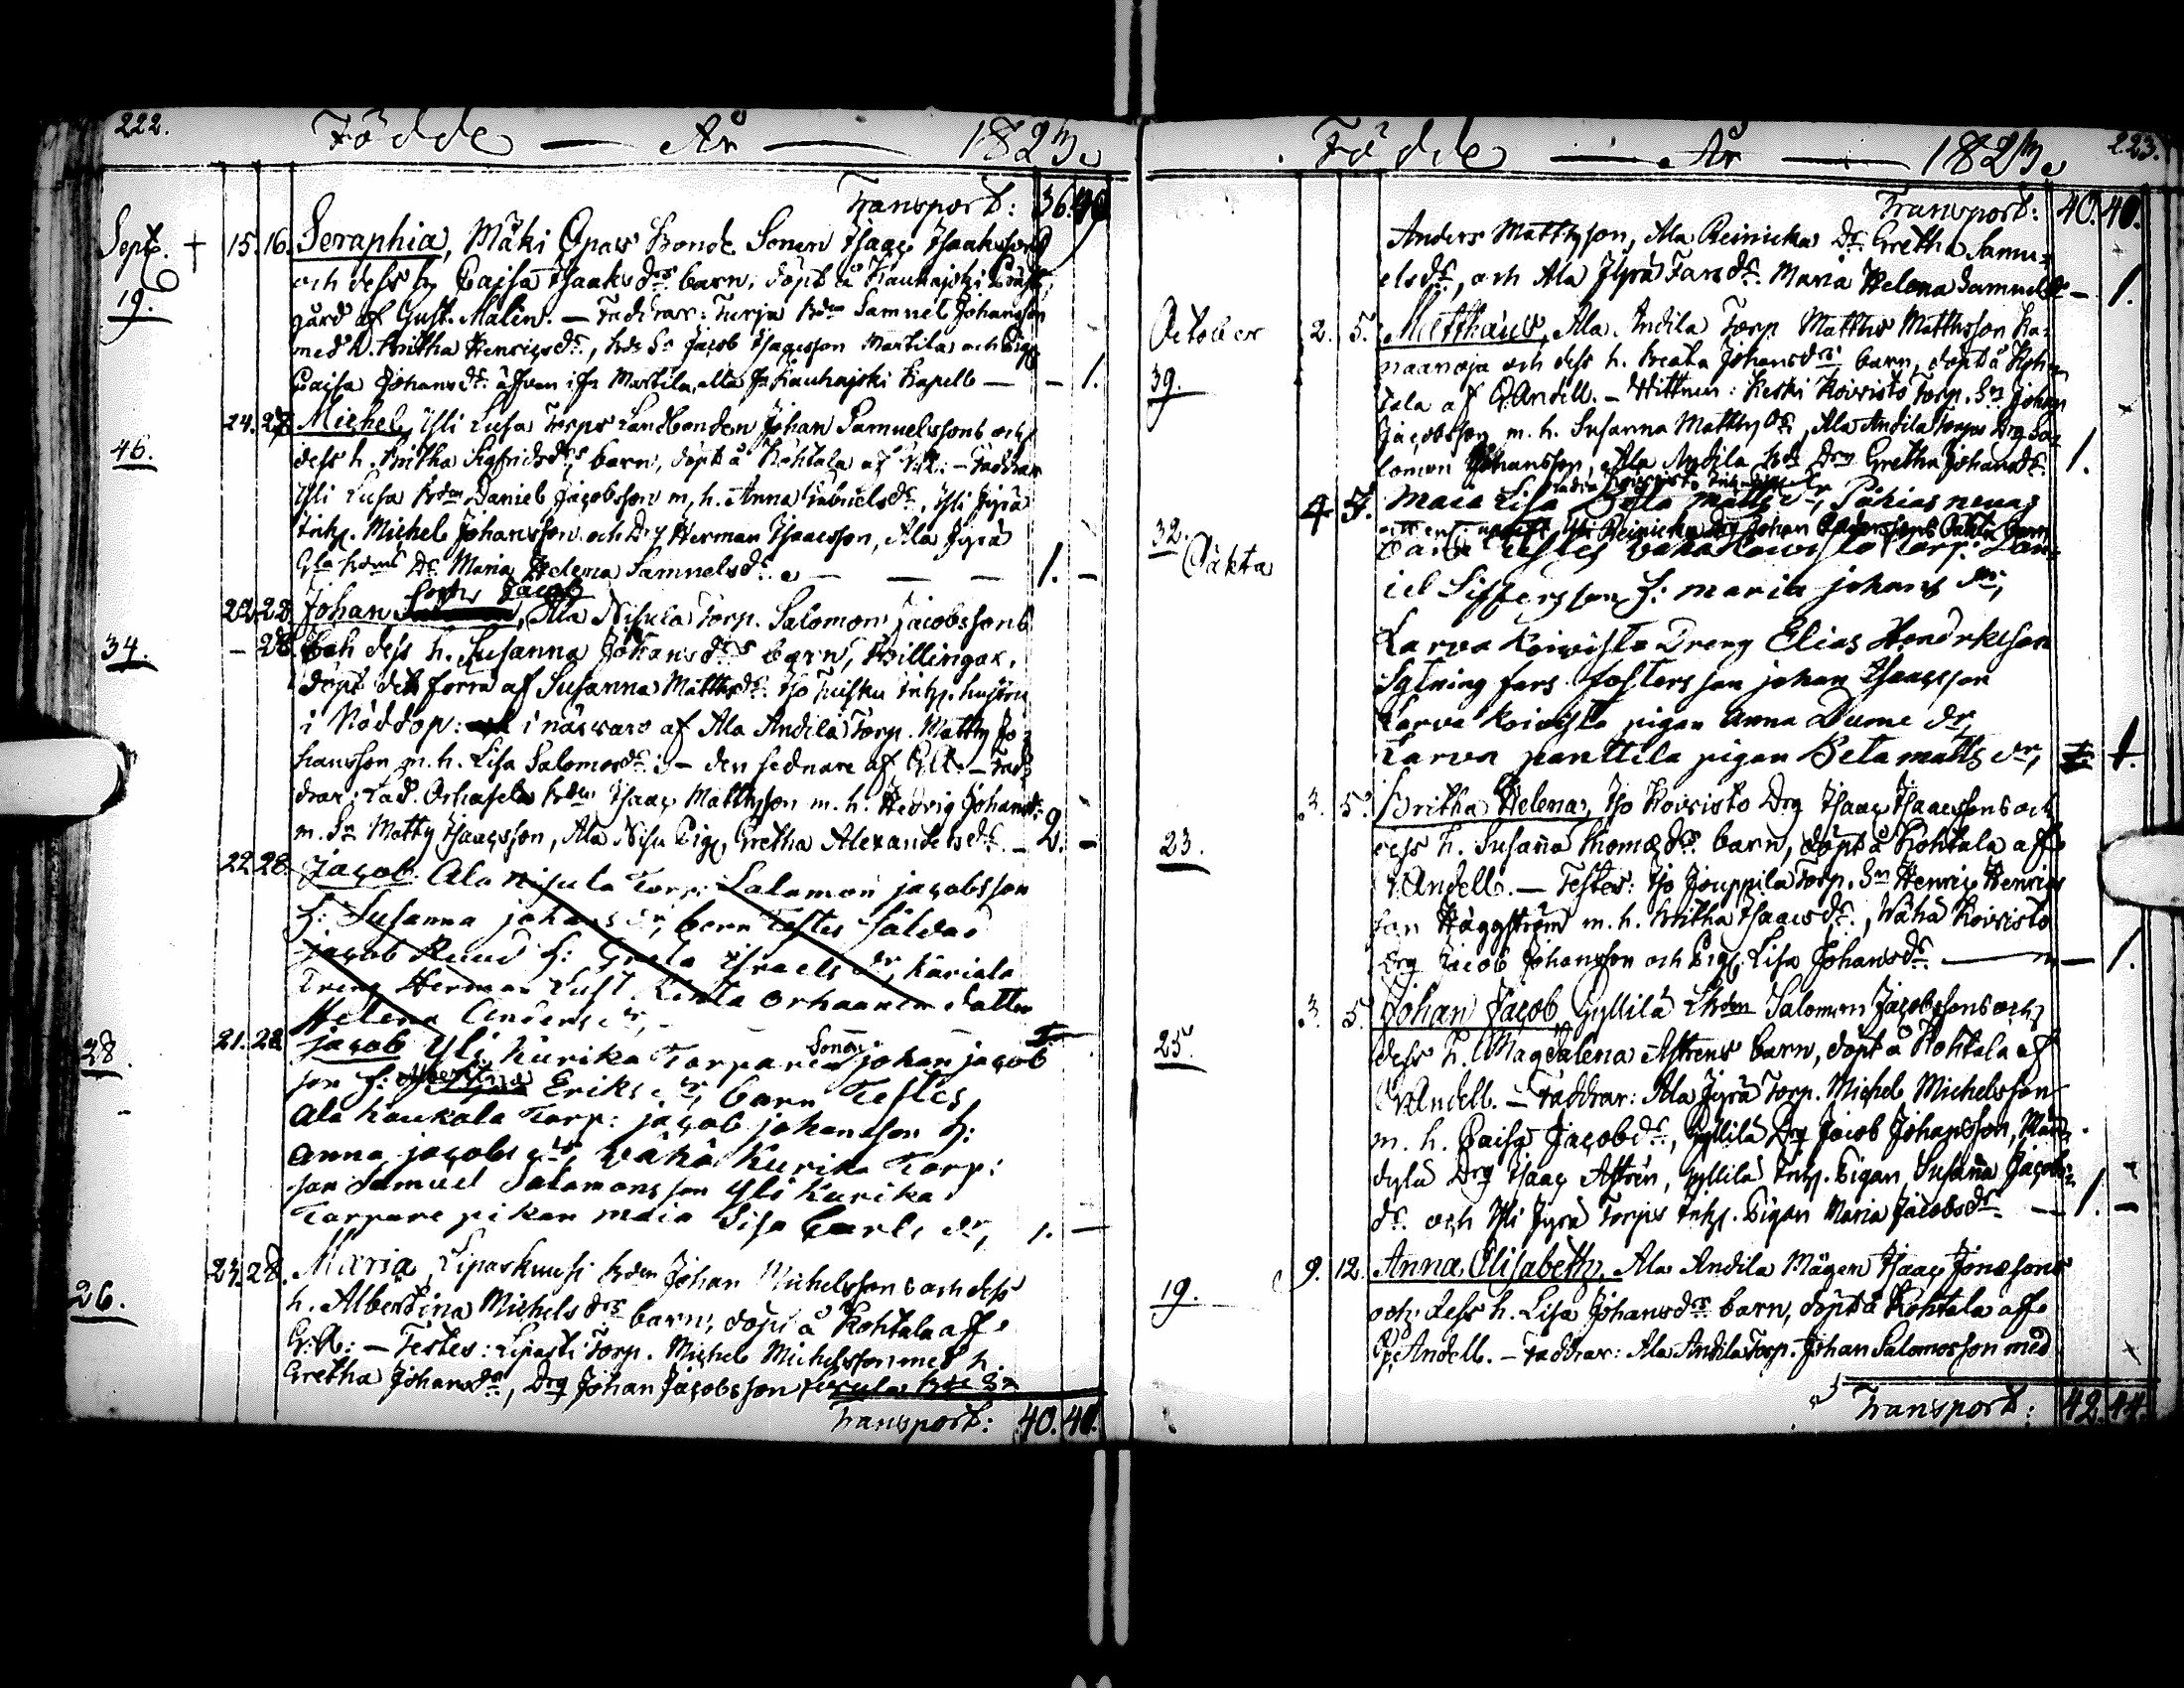 222.
Födde — År — 1823.
Transport: 36. 40
Sept. + 15. 16. Seraphia, Mäki Opas Bonde Sonen Isaac Isaakssons
och dess h. Cajsa Isaaksdrs barn, döpt å Kauhajoki Präst
19.
gård af Gust. Malin. — Faddrar: Turja Bdn Samuel Johansson
med h. Britha Henricsdr., Bds Sn Jacob Isacsson Martila och Pig.
Caisa Johansdr. äfven ifr Martila, alla fr Kauhajoki Kapell — - 1.
24. 28. Michel, Yli Lusa Torps Landbonden Johan Samuelssons och
46.
dess h. Britha Sigfridsdrs barn, döpt å Kohtala af — Faddrar
Yli Lusa Bdn Daniel Jacobsson m. h. Anna Gabrielsdr., Yli Jyrä
Inhs. Michel Johansson och Drg Herman Isaacsson, Ala Jyrä
Gla Bdns Dr. Maria Helena Samuelsdr. — — — 1. -
Jacob
22. 28. Johan, Ala Nisula Torp. Salomon Jacobssons
34.
- 28. och dess h. Susanna Johansdrs barn, Tvillingar,
döpt det förra af Susanna Mattsdr. Iso
i Nöddop: i närvaro af Ala Andila Torp. Matth Jo-
hansson m. h. Lisa Salomosdr: — den sednare af — Fad-
drar: Bdn Isaac Mattsson m. h. Hedvig Johansdr:
m. Sn Matts Isaacsson, Ala Nisu Pig. Gretha Alexandersdr. — 2. -
22 28. Jacob Ala Nisula Torp: Salamon jacobsson
h: Susanna johans dr, barn Testes Saldad
jacob Ruud h: Greta Israels dr, Kariala
Dreng Herman Lust. Orhaanen datter
Helena Anders dr,
28.
21. 28 jacob Yli Kurika Torpare Sonen johan jacob
son h: Albertina Eriks dr, barn Testes
Ala Koukola Torp: jacob johansson h:
Anna jacobs dr, Vähä Kurika Torp:
son Samuel Salamonsson Yli Kurika
Torpare pikan maia Lisa Carls dr, 1. —
26.
24. 28. Maria, Lipaskuusi Bdn Johan Michelssons och dess
h. Albertina Michelsdrs barn, döpt å Kohtala af
G: A: — Testes: Lipasti Torp. Michel Michelsson med h.
Gretha Johansdr, Drg Johan Jacobsson
Transport: 40. 40.
223.
Födde — År — 1823.
Transport: 40. 40.
Anders Mattsson, Ala Reinicka Dr. Gretha Samu-
elsdr., och Ala Jyrä Fars dr. Maria Helena Samuelsdr — 1.
October 2. 5. Matthäus, Ala Andila Torp Matths Matthsson Ka-
39.
naanoja och dess h. Beata Johansdrs barn, döpt å Koh-
tala af G. Andell. — Wittnen: Keski Koivisto Torp. Sn Johan
Jacobsson m. h. Susanna Matthsdr., Ala Andila Torps Drg Sa-
lomon Johansson, Ala Andila Bds Drg Gretha Johansdr. 1.
4. 5. Maia Lisa Beta matts dr,
32. Oäkta
barn Testes Vähä Koivisto Torp: Dan-
iel Siffersson h: maria johans dr,
Larva Koivisto Dreng Elias Hendrikson
Sytning fars fosterson johan Isaacsson
Larva Koivisto pigan anna Dume dr,
Larva panttila pigan Beta matts dr, 1.
3. 5. Britha Helena, Iso Koivisto Drg Isaac Isaacssons och
23.
dess h. Susana Thomædrs barn, döpt å Kohtala af
G. Andell. — Testes: Iso Jouppila Torp. Sn Henric Henrics
son Häggström m. h. Britha Isaacsdr., Wähä Koivisto
Drg Jacob Johansson och Pig. Lisa Johansdr. — — 1.
3. 5. Johan Jacob, Gyllilä Salomon Jacobssons och
25.
dess h. Magdalena Aftrens barn, döpt å Kohtala af
G. Andell. — Faddrar: Ala Jyrä Torp. Michel Michelsson
m. h. Caisa Jacobsdr., Gyllilä Drg Jacob Johansson, Män-
dylä Drg Isaac Aftrén, Gyllilä Inhs. Pigan Susana Jacobs-
dr. och Yli Jyrä Torps Inhs. Pigan Maria Jacobsdr. — 1. -
9. 12. Anna Elisabeth, Ala Andila Mågen Isaac Jonæsons
19.
och dess h. Lisa Johansdrs barn, döpt å Kohtala af
G. Andell. — Faddrar: Ala Andila Torp. Johan Salomosson med
Transport: 42. 44.